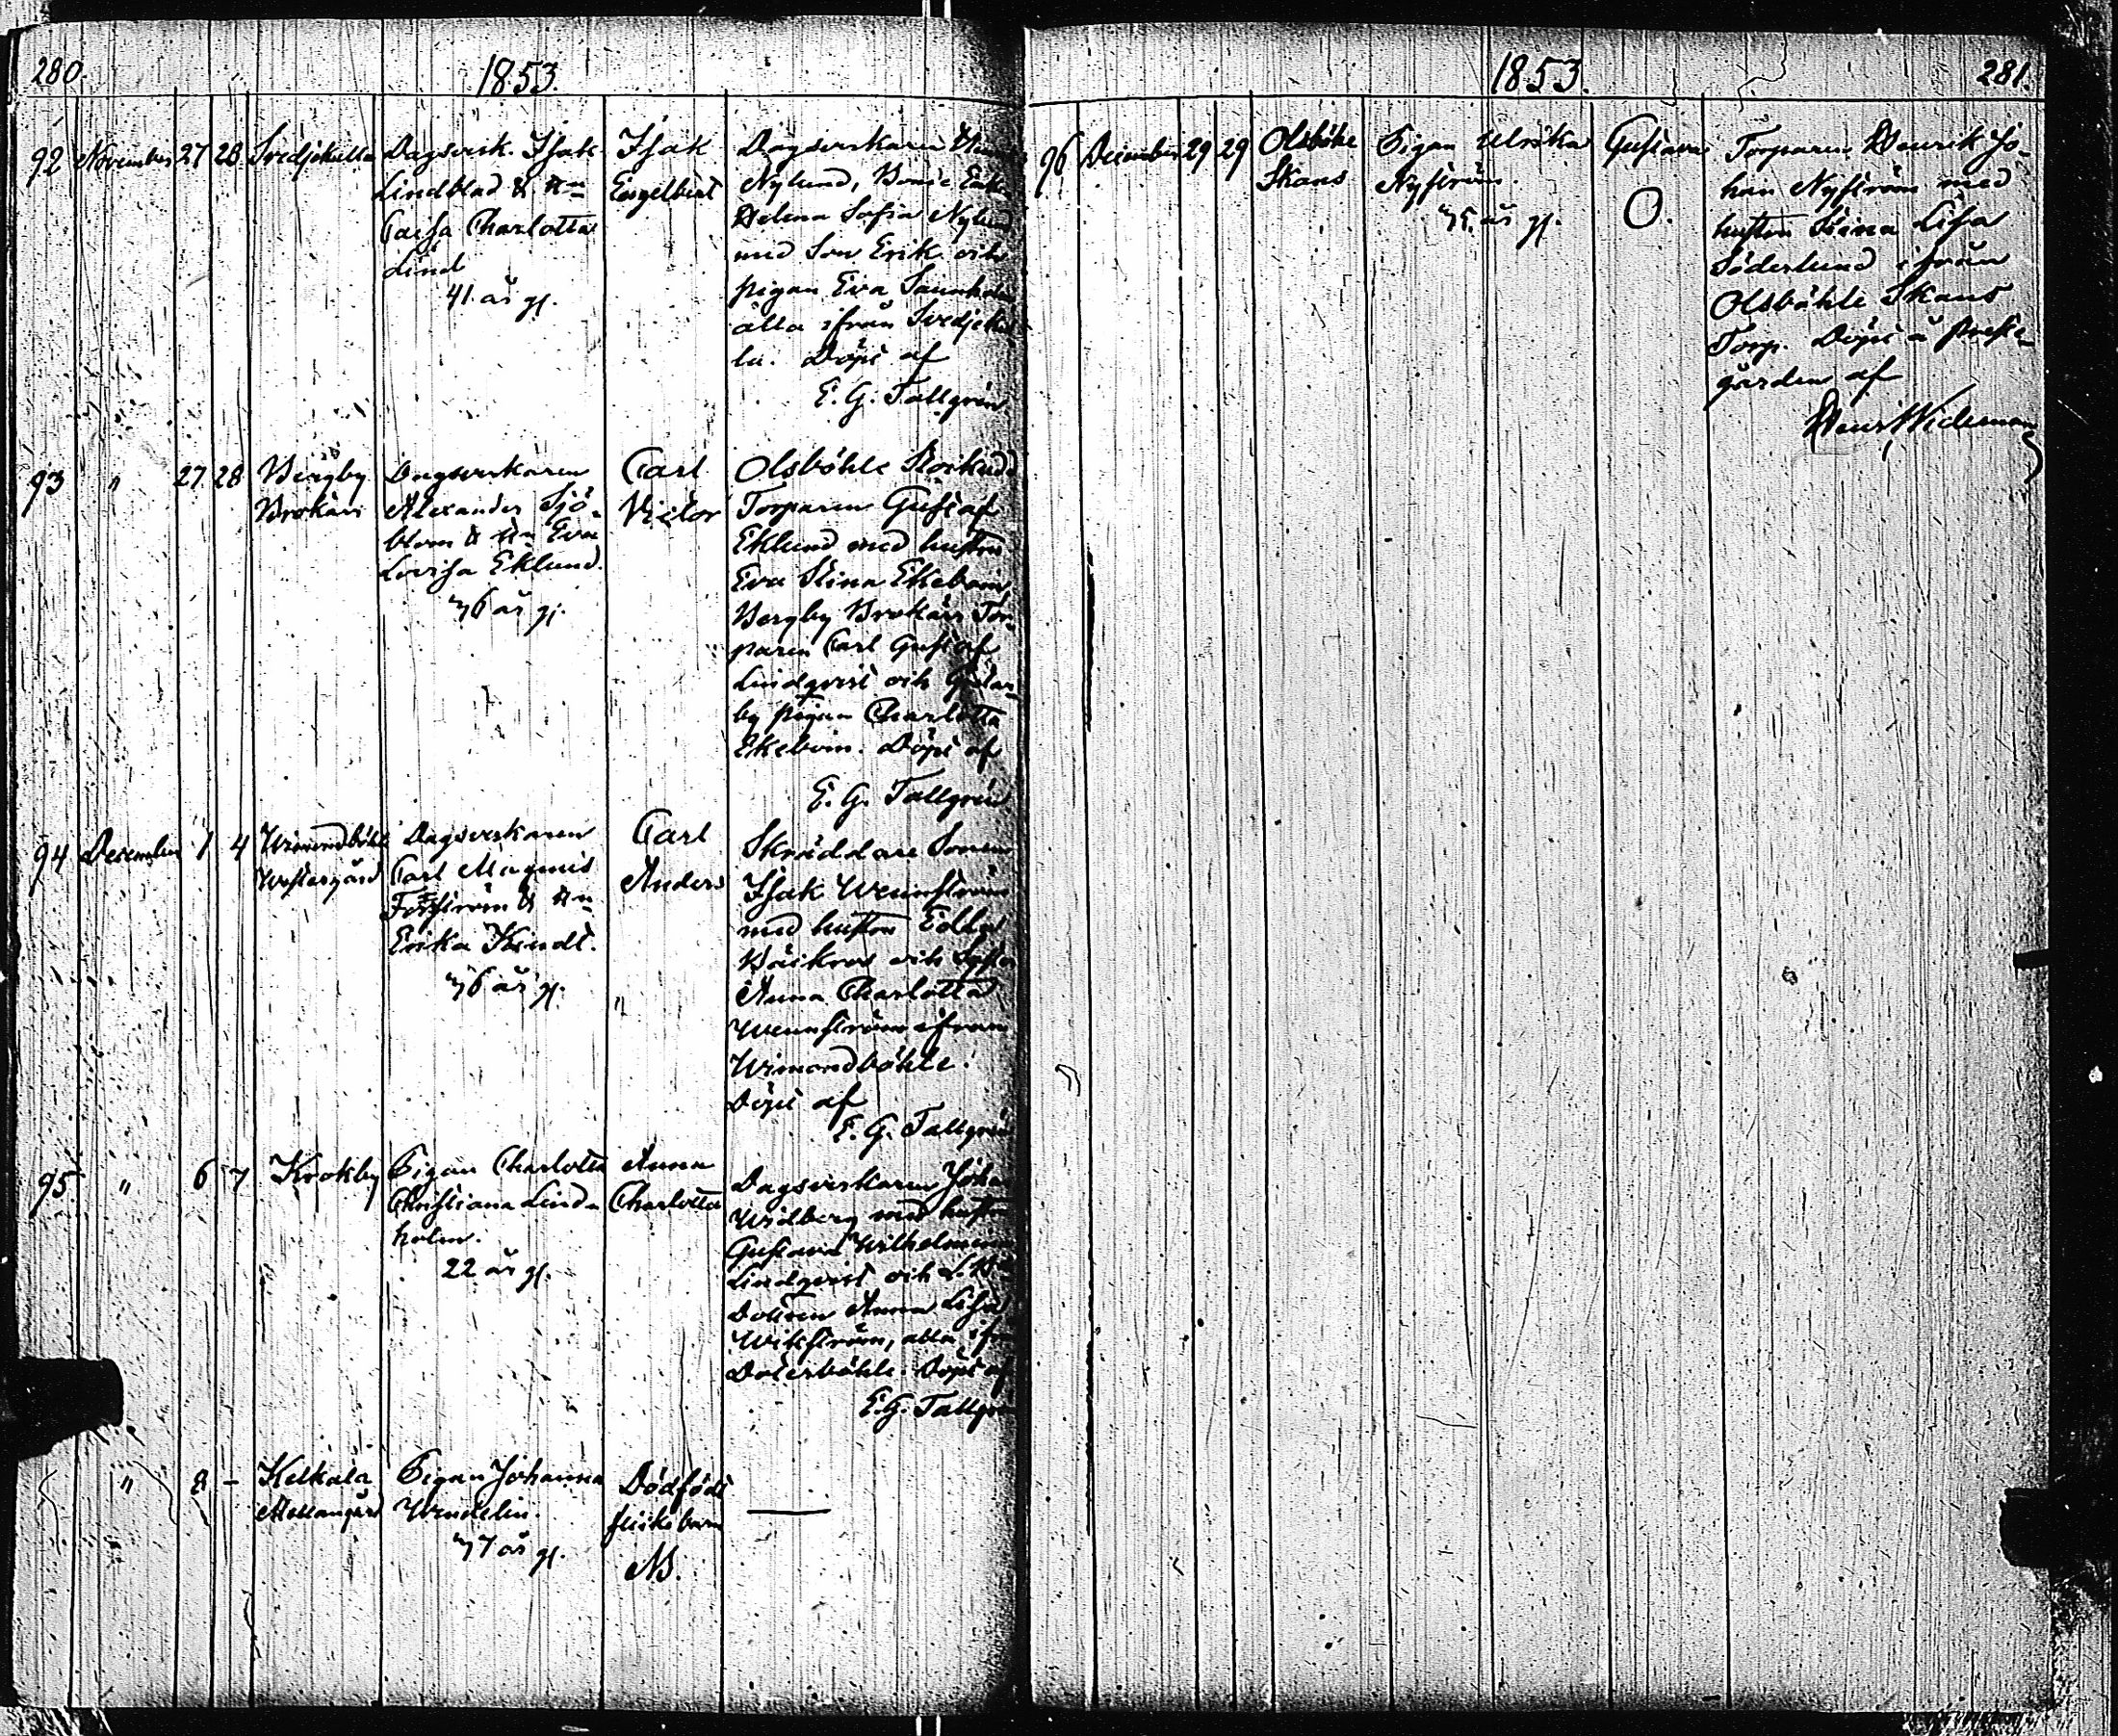 280.
1853.
92 November 27 28 Svedjekulla Dagsverk. Isak Isak Dagsverkaren
Lindblad & Hu Engelbert Nylund, Bonde Enk.
Caisa Charlotta Helena Sofia Nylund
Lind med Son Erik och
41 år gl. pigan Eva Sannholm
alla ifrån Svedjekul
la. Döpt af
E. G. Tallgren
93 " 27 28 Bergby Dagsverkaren Carl Olsböhle
Brokärr Alexander Sjö- Victor Torparen Gustaf
blom & Hu Eva Eklund med hustru
Lovisa Eklund. Eva Stina Ekebom,
36 år gl. Bergby Brokärr Tor-
paren Carl Gustaf
Lindqvist och
by pigan Charlotta
Ekebom. Döpt af
E. G. Tallgren
94 December 1 4 Wimondböhle Dagsverkaren Carl Skräddare Sonen
Westergård Carl Magnus Anders Isak Wennström
Forsström & Hu med hustru Edla
Erika Kindt. och
36 år gl. " Anna Charlotta
Wennström ifrån
Wimondböhle.
Döpt af
E. G. Tallgren
95. " 6 7 Krokby Pigan Charlotta Anna Dagsverkaren Johan
Christiana Lind- Charlotta Widberg med hustru
holm. Gustava Wilhelmina
22 år gl. Lindqvist och
Dottren Anna Lisa
Wikström, alla ifr
Dalersböhle. Döpt af
E. G. Tallgren
" 8 – Kelkala Pigan Johanna Dödfödt
Mellangård Wendelin. flickebarn —
37 år gl. NB.
1853. 281.
96 December 29 29 Olsböhle Pigan Ulrika Gustava Torparen Henrik Jo-
Skans Nyström. O. han Nyström med
35 år gl. hustru Stina Lisa
Söderlund ifrån
Olsböhle Skans
Torp. Döpt å Prest-
gården af
Henr. Wideman